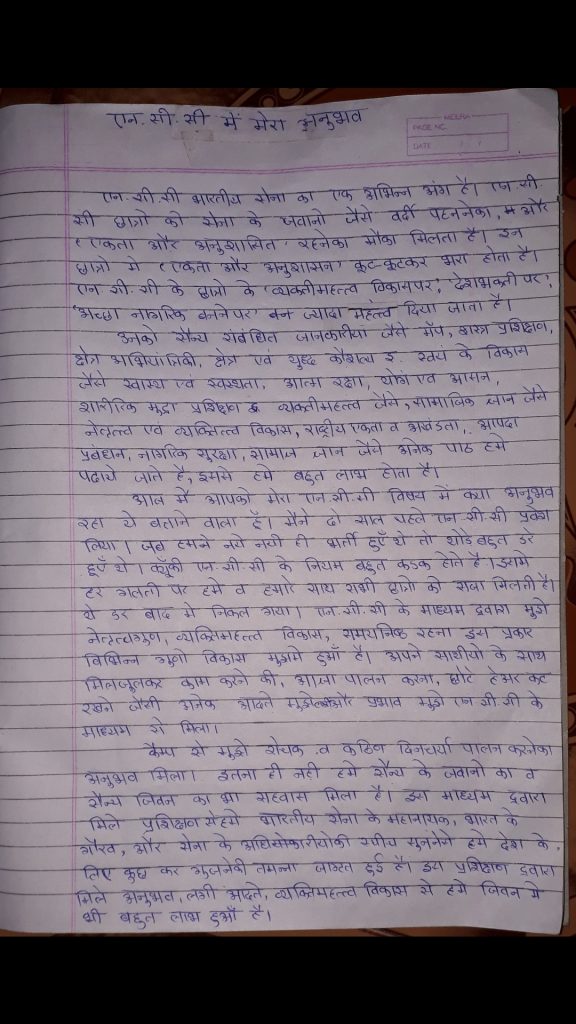 एन.सी.सी में मेरा अनुभव
MEERA
PAGE NO.
DATE / /
एन.सी.सी भारतीय सेना का एक अभिन्न अंग है। एन.सी.
सी छात्रो को सेना के जवानो जैसे वर्दी पहननेका, और
'एकता और अनुशासित' रहनेका मौका मिलता है। इन
छात्रो मे 'एकता और अनुशासन' कूट-कूटकर भरा होता है।
एन सी सी के छात्रो के 'व्यक्तीमहत्त्व विकासपर', 'देशभक्ती पर',
'अच्छा नागरिक बननेपर' ज्यादा महत्त्व दिया जाता है।
उनको सैन्य संबंधित जानकारीयां जैसे मॅप, शास्त्र प्रशिक्षण,
क्षेत्र अभियांत्रिकी, क्षेत्र एवं युद्ध कौशल्य इ. स्वयं के विकास
जैसे स्वास्थ्य एवं स्वस्थता, आत्मा रक्षा, योग एवं आसन,
शारीरिक मुद्रा प्रशिक्षण व्यक्तीमहत्त्व जैसे, सामाजिक ज्ञान जैसे
नेतृत्त्व एवं व्यक्तित्त्व विकास, राष्ट्रीय एकता व अखंडता, आपदा
प्रबंधन, नागरिक सुरक्षा, सामान्य ज्ञान जैसे अनेक पाठ हमे
पढाये जाते है, इससे हमे बहुत लाभ होता है।
आज मै आपको मेरा एन.सी.सी विषय में क्या अनुभव
रहा ये बताने वाला हूँ। मैंने दो साल पहले एन.सी.सी प्रवेश
लिया। जब हमने नये नयी ही भर्ती हुएँ थे तो थोडे बहुत डर
हूएँ थे। क्यूँकी एन.सी.सी के नियम बहुत कडक होते है। इसमे
हर गलती पर हमे व हमारे साथ सभी छात्रो को सजा मिलती है।
ये डर बाद मे निकल गया। एन.सी.सी के माध्यम द्वारा मुझे
नेतृत्वगुण, व्यक्तिमहत्त्व विकास, समयनिष्ठ रहना इस प्रकार
विभिन्न गुणो विकास मुझमे हुआँ है। अपने साथीयो के साथ
मिलजुलकर काम करने की, आज्ञा पालन करना, छोटे हेअर कट
रखने जैसी अनेक आदते मुझे और प्रभाव मुझे एन सी सी के
माध्यम से मिला।
कॅम्प से मुझे रोचक व कठिन दिनचर्या पालन करनेका
अनुभव मिला। इतना ही नही हमे सैन्य के जवानो का व
सैन्य जिवन का भी सहवास मिला है। इस माध्यम द्वारा
मिले प्रशिक्षण से हमे भारतीय सेना के महानायक, भारत के
गौरव, और सेना के अधिकारीयोकी स्पीच सुननेसे हमे देश के
लिए कुछ कर गुजरनेकी तमन्ना जागृत हुई है। इस प्रशिक्षण द्वारा
मिले अनुभव, लगी आदते, व्यक्तिमहत्त्व विकास से हमे जिवन मे
भी बहुत लाभ हुआँ है।